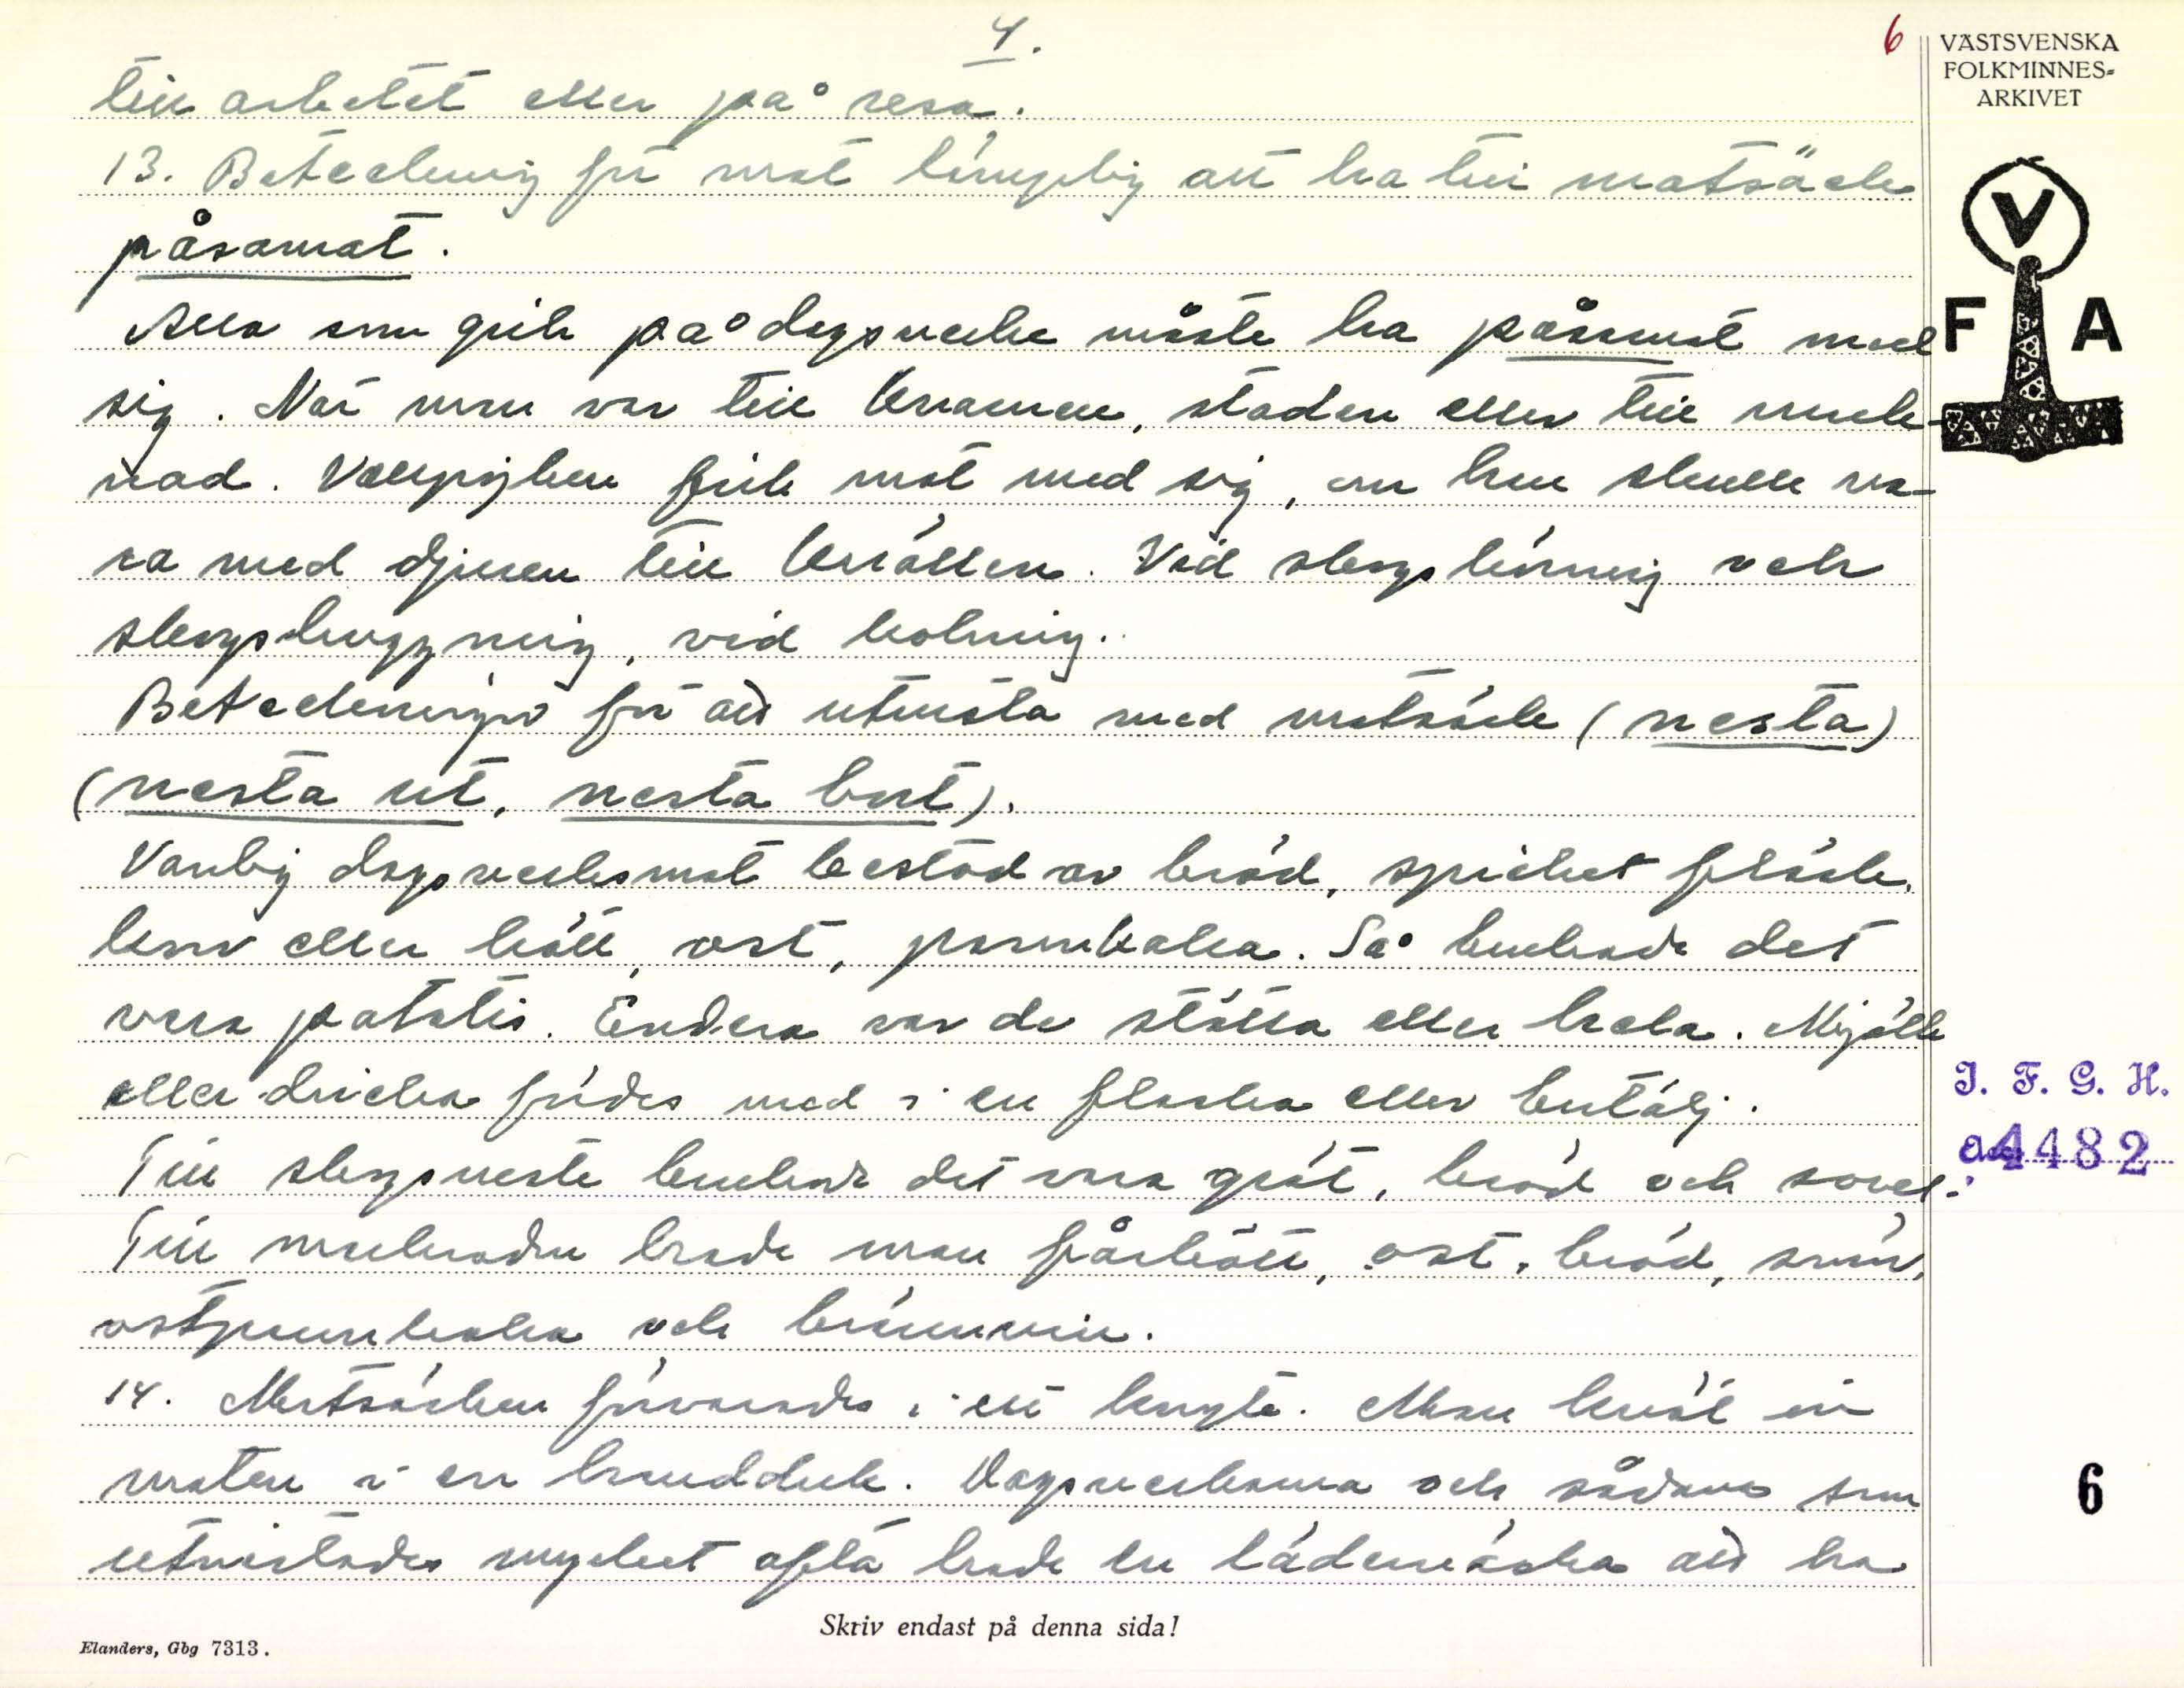 4.
6
VÄSTSVENSKA
FOLKMINNES-
ARKIVET
till arbetet eller på resa.
13. Beteckning för mat lämplig att ha till matsäck
påsamat.
Alla som gick på dagsverke måste ha påsamat med
sig. När man var till kvarnen, staden eller till mark-
nad. Vallpojken fick mat med sig, om han skulle va-
ra med djuren till kvällen. Vid skogskörning och
skogshuggning, vid kolning.
Beteckningar för att utrusta med matsäck (nesta)
(nesta ut, nesta bort).
Vanlig dagsverksmat bestod av bröd, spicket fläsk,
korv eller kött, ost, pannkaka. Så brukade det
vara potatis. Endera var de stötta eller hela. Mjölk
eller dricka fördes med i en flaska eller butälj.
Till skogsneste brukade det vara gröt, bröd och sovel.
Till marknaden hade man fårkött, ost, bröd, smör,
ostpannkaka och brännvin.
14. Matsäcken förvarades i ett knyte. Man knöt in
maten i en handduk. Dagsverkarna och sådana som
utnistades mycket ofta hade en läderväska att ha
V
F A
I. F. G. H.
4482
6
Skriv endast på denna sida!
Elanders, Gbg 7313.